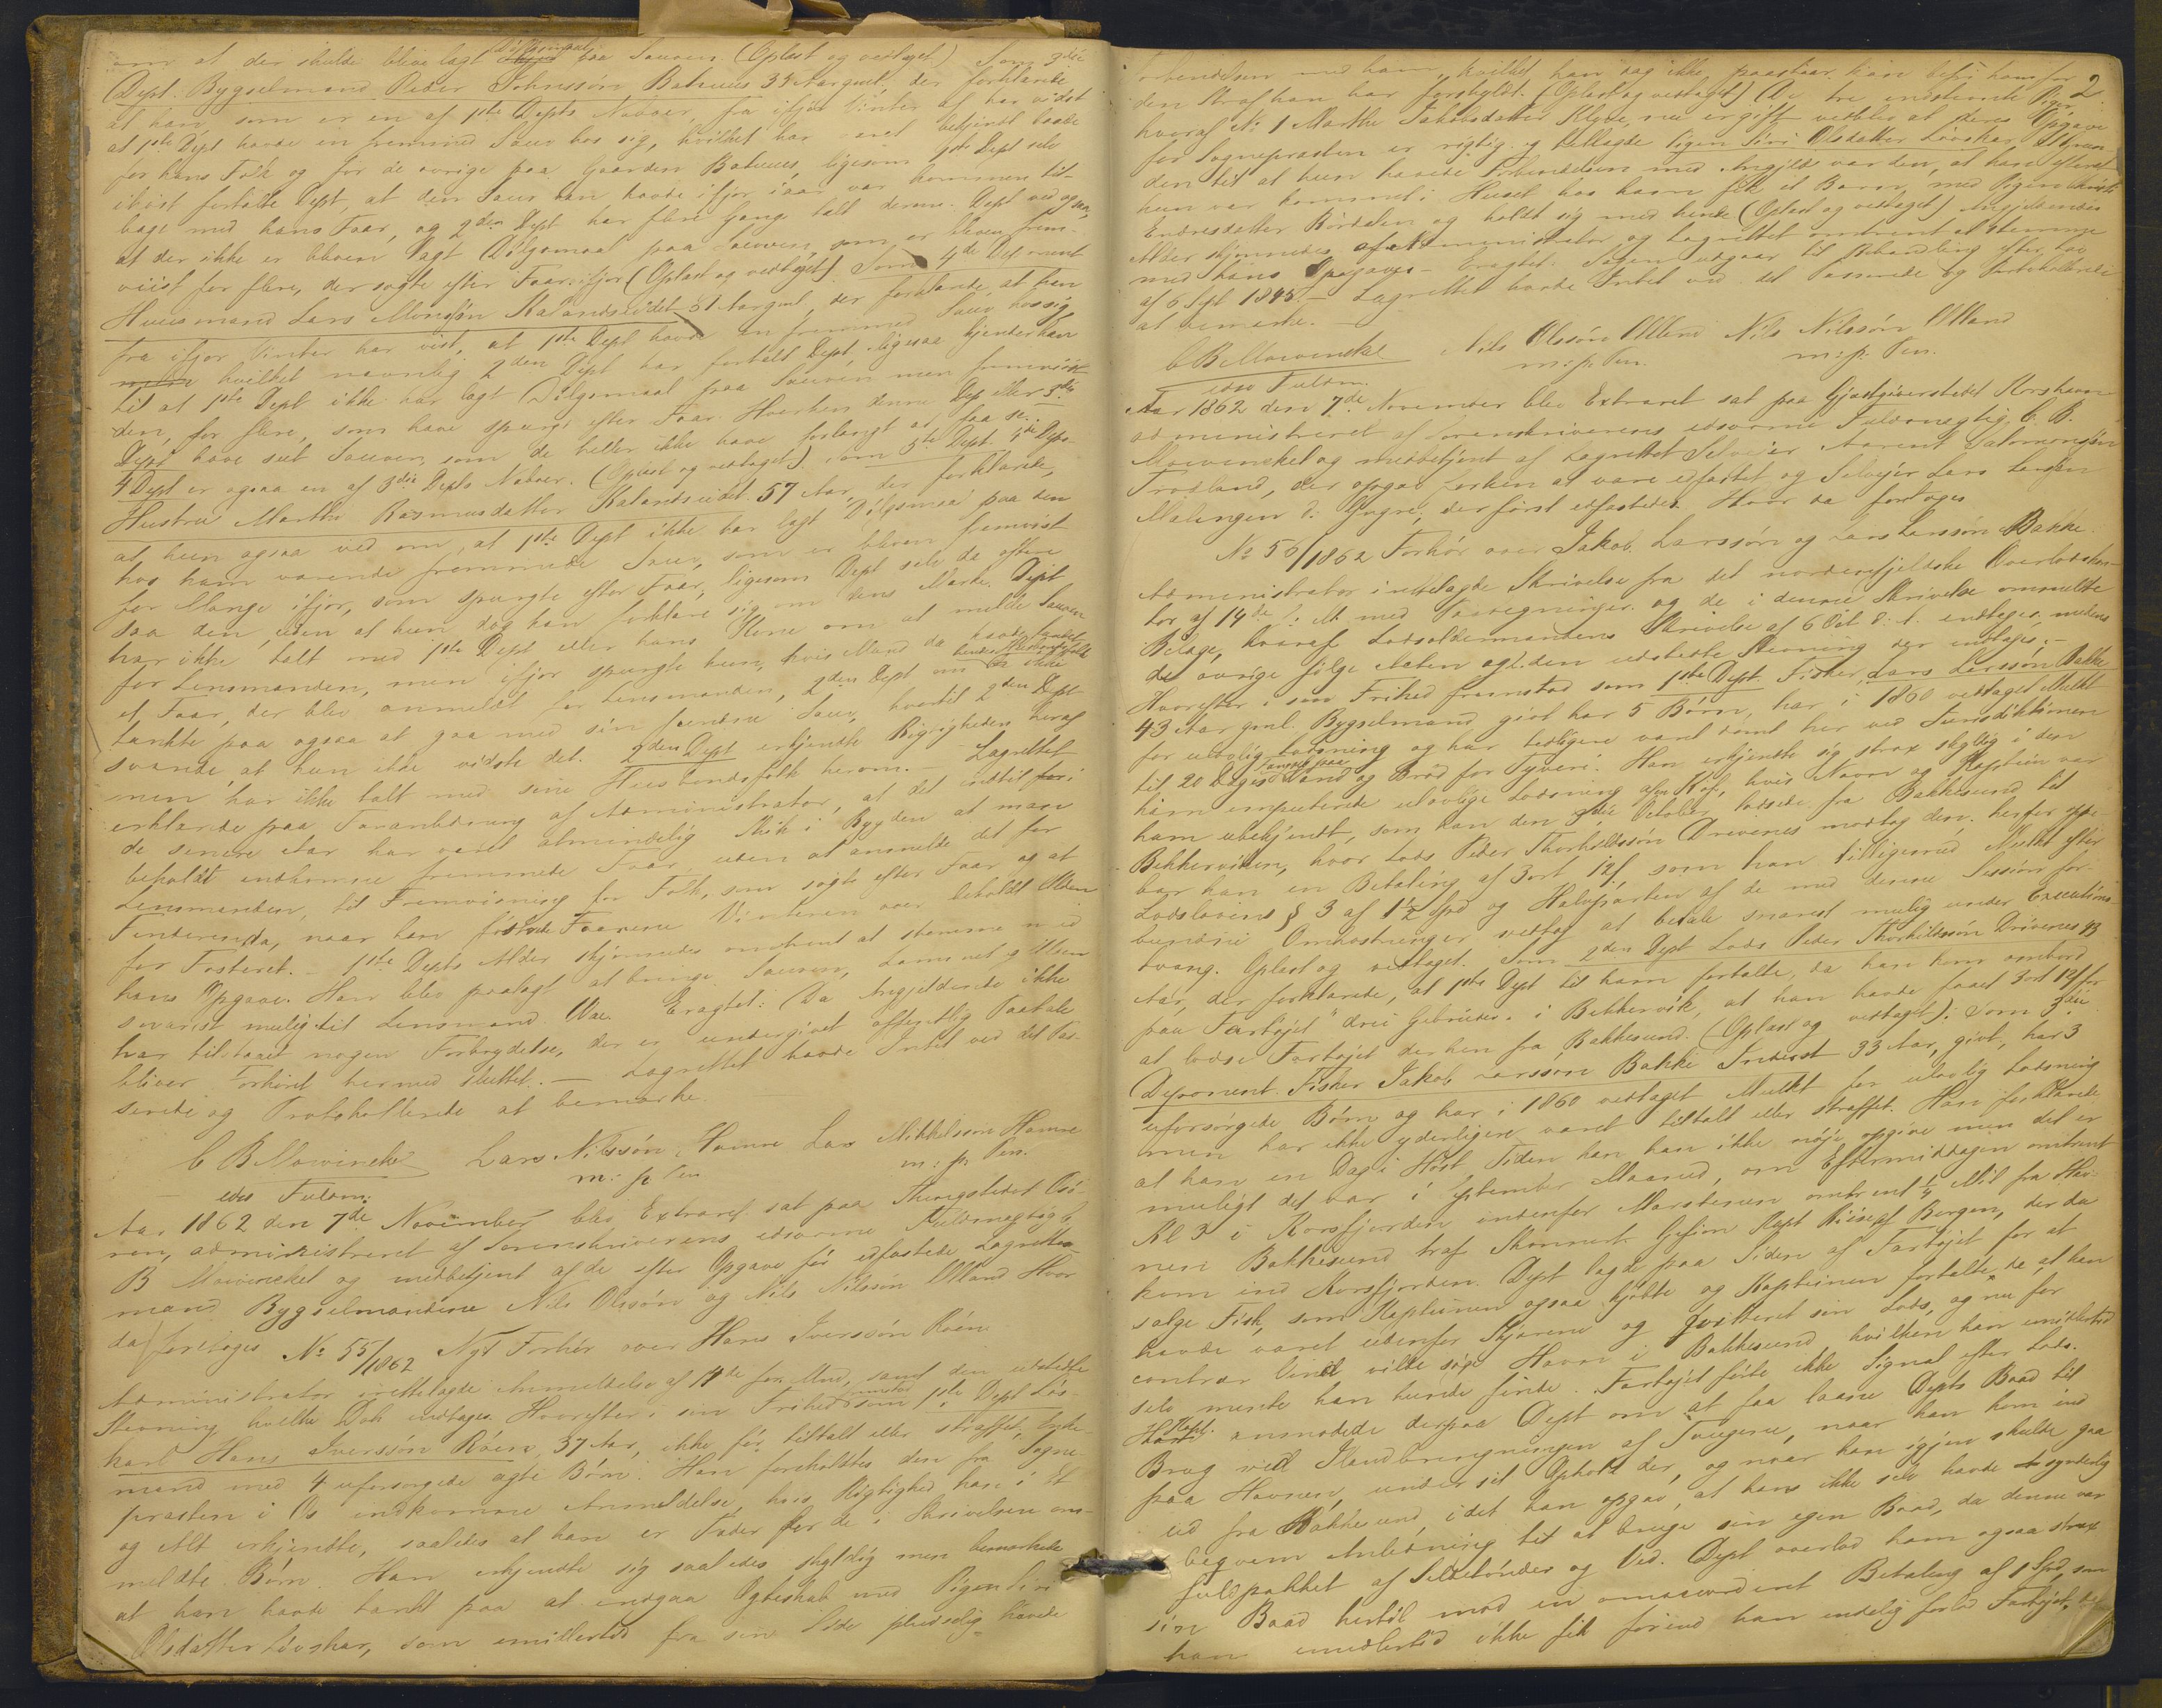 om at der skulde blive lagt Dølgsmaal paa Sauen. (Oplæst og vedtaget) Som 3die
Dept. Bygselmand Peder Johnessøn Batnæs 34 Aargml, der forklarede
at han, som er en af 1ste Depts Naboer, fra ifjor Vinter af har vidst
at 1ste Dept havde en fremmed Sau hos sig, hvilket har været bekjendt baade
for hans Folk og for de øvrige paa Gaarden Batnæs, ligesom 1ste Dept selv
ihøst fortalte Dept, at den Sau han havde ifjor iaar var kommen til-
bage med hans Faar, og 2den Dept har flere Gange talt derom. Dept ved ogsaa,
at der ikke er bleven lagt Dølgsmaal paa Sauen, som er bleven frem-
viist for flere, der søgte efter Faar ifjor (Oplæst og vedtaget). Som 4de Deponent
Huusmand Lars Monsøn Kalandseidet 31 Aargml, der forklarede, at han
fra ifjor Vinter har vist, at 1ste Dept havde en fremmed Sau hos sig,
hvilket navnlig 2den Dept har fortalt Dept, ligesaa kjender han
til at 1ste Dept ikke har lagt Dølgsmaal paa Sauen men fremviist
den, for flere, som have spurgt efter Faar. Hverken denne Dep eller 3die
Dept have seet Sauen, som de heller ikke have forlangt at faa se.
4 Dept er ogsaa en af 3die Depts Naboer. (Oplæst og vedtaget). Som 5te Dept 4de Depo-
Hustru Marthe Rasmusdatter Kalandseidet 57 Aar, der forklarede,
at hun ogsaa ved om, at 1ste Dept ikke har lagt Dølgsmaal paa den
hos ham værende fremmede Sau, som er bleven fremvist
for Mange ifjor, som spurgte efter Faar, ligesom Dept selv da oftere
saa den, uden at hun dog kan forklare sig om dens Mærke. Dept
har ikke talt med 1ste Dept eller hans Kone om at melde Sauen
for Lensmanden, men ifjor spurgte hun, hvis Mand da havde fundet
et Faar, der blev anmeldt for Lensmanden, 2den Dept om ikke
tænkte paa ogsaa at gaa med sin fundne Sau, hvortil 2den Dept
svarede, at hun ikke vidste det. 2den Dept erkjendte Rigtigheden heraf
men har ikke talt med sine Huusbondsfolk herom. – Lagrettet
erklærede paa Foranledning af Administrator, at det indtil for i
de senere Aar har været almindelig Skik i Bygden at man
beholdt indkomne fremmede Faar uden at anmelde det for
Lensmanden, til Fremvisning for Folk, som søgte efter Faar og at
Finderen da, naar han føstrede Faarene Vinteren over beholdt Ulden
for Fosteret. – 1ste Depts Alder skjønnedes omtrent at stemme med
hans Opgave. Han blev paalagt at bringe Sauen, Lammet og Ulden
snarest mulig til Lensmand Wae. Eragtet: Da Angjældende ikke
har tilstaaet nogen Forbrydelse, der er undergivet offentlig Paatale
bliver Forhøret hermed sluttet. – Lagrettet havde Intet ved det Pas-
serede og Protokollerede at bemærke.
C B Mowinckel Lars Nilssøn Hamre Lars Mikkelssøn Hamre
edsv Fuldm. m: p: Pen m: p: Pen.
Aar 1862 den 7de November blev Extraret sat paa Thingstedet Osø-
ren, administreret af Sorenskriverens edsvorne Fuldmægtig C.
B Mowinckel og medbetjent af de efter Opgave før edfæstede Lagrettes-
mænd Bygselmændene Nils Olssøn og Nils Nilssøn Ulland Hvor
da foretoges No 55/1862 Nyt Forhør over Hans Iverssøn Røen
Administrator irettelagde Anmeldelse af 14de for. Md, samt den udstedte
Stevning hvilke Dok indtages. Hvorefter i sin Frihed fremstod som 1ste Dept Løs-
karl Hans Iverssøn Røen, 37 Aar, ikke før tiltalt eller straffet, Enke-
mand med 4 uforsørgede ægte Børn. Han foreholdtes den fra Sogne-
præsten i Os indkomne Anmeldelse, hvis Rigtighed han i Et
og Alt erkjendte, saaledes at han er Fader for de i Skrivelsen om-
meldte Børn. Han erkjendte sig saaledes skyldig men bemærkede
at han havde tænkt paa at indgaa Ægteskab med Pigen Siri
Olsdatter Løvskar, som imidlertid fra sin Side pludselig hævede
2
Forbindelsen med ham, hvilket han dog ikke paastaar kan befri ham for
den Straf han har forskyldt. (Oplæst og vedtaget) De tre indstevnte Piger
hvoraf No 1 Marthe Jakobsdatter Klyve nu er gift vedblev at deres Opgave
for Sognepræsten er rigtig og tillagde Pigen Siri Olsdatter Løvskar at Grun-
den til at hun hævede Forbindelsen med Angjeldte var den, at han efterat
hun var kommet i Huset hos ham fik et Barn med Pigen Christi
Endresdatter Børdalen og holdt sig med hende (Oplæst og vedtaget) Angjeldendes
Alder skjønnedes af Administrator og Lagrettet omtrent at stemme
med hans Opgave. – Eragtet. Sagen udgaar til Behandling efter Lov
af 6 Sept 1845. – Lagrettet havde Intet ved det Passerede og Protokollerede
at bemærke. –
C B Mowinckel Nils Olssøn Ulland Nils Nilssøn Ulland
edsv Fuldm. m: p: Pen. m: p: Pen.
Aar 1862 den 7de November blev Extraret sat paa Gjæstgiverstedet Korshavn
administreret af Sorenskriverens edsvorne Fuldmægtig C. B.
Mowinckel og medbetjent af Lagrettet Selveier Aarent Salomonsøn
Trædland, der opgav forhen at være edfæstet og Selvejer Lars Larsøn
Malingen d: Yngre, der først edfæstedes. Hvor da foretoges
No 56/1862 Forhør over Jakob Larssøn og Lars Larssøn Bakke
Administrator irettelagde Skrivelse fra det nordenfjeldske Overlodskon-
tor af 14de f: M. med Paategninger og de i denne Skrivelse ommeldte
Bilage, hvoraf Lodsoldermandens Skrivelse af 6 Oct d. A. indtages, medens
de øvrige følge Akten og den udstedte Stevning der indtages. –
Hvorefter i sin Frihed fremstod som 1ste Dept Fisker Lars Larssøn Bakke
43 Aar gml. Bygselmand givt har 5 Børn, har i 1860 vedtaget Mulkt
for ulovlig Lodsning og har tidligere været dømt her ved Jurisdiktionen
til 20 Dages Fængsel paa Vand og Brød for Tyveri. Han erkjendte sig strax skyldig i den
ham imputerede ulovlige Lodsning af en Kof, hvis Navn og Kaptein var
ham ubekjendt, som han den 3die October lodsede fra Bakkesund til
Bekkerviken, hvor Lods Peder Thorkildssøn Drivenes modtog den; herfor oppe-
bar han en Betaling af 3 ort 12 s, som han tilligemed Mulkt efter
Lodslovens § 3 af 1½ Spd og Halvparten af de med denne Session for-
bundne Omkostninger vedtog at betale snarest mulig under Executions-
tvang. Oplæst og vedtaget. Som 2den Dept Lods Peder Thorkildssøn Drivenes 43
Aar, der forklarede, at 1ste Dept til ham fortalte, da han kom ombord
paa Fartøjet "drei Gebrüder" i Bekkervik, at han havde faaet 3 ort 12 s for
at lodse Fartøjet derhen fra Bakkesund. (Oplæst og vedtaget). Som 3die
Deponent Fisker Jakob Larssøn Bakke Inderst 33 Aar, givt, har 3
uforsørgede Børn og har i 1860 vedtaget Mulkt for ulovlig Lodsning
men har ikke yderligere været tiltalt eller straffet. Han forklarede
at han en Dag i Høst Tiden kan han ikke nøje opgive men det er
muligt det var i September Maaned, om Eftermiddagen omtrent
Kl 3 i Korsfjorden indenfor Marstenen omtrent ¼ Mil fra Hav-
nen Bakkesund traf Skonnert Gefion Kapt Riise af Bergen, der da
kom ind Korsfjorden. Dept lagde paa Siden af Fartøjet for at
sælge Fisk, som Kapteinen ogsaa kjøbte og Kapteinen fortalte da, at han
havde været udenfor Skjærene og qvitteret sin Lods, og nu for
contrær Vind vilde søge Havn i Bakkesund hvilken han imidlertid
selv mente han kunde finde. Fartøjet førte ikke Signal efter Lods.
Kapt. anmodede derpaa Dept om at faa laane Depts Baad til
Brug ved Ilandbringningen af Tougene, naar han kom ind
paa Havnen, under sit Ophold der, og naar han igjen skulde gaa
ud fra Bakkesund, idet han opgav, at han ikke selv havde synderlig
beqvem Anledning til at bruge sin egen Baad, da denne var
fuldpakket af Sildetønder og Ved. Dept overlod ham ogsaa strax
sin Baad hertil mod en omaccorderet Betaling af 1 Spd, som
han imidlertid ikke fik førend han endelig forlod Fartøjet, da